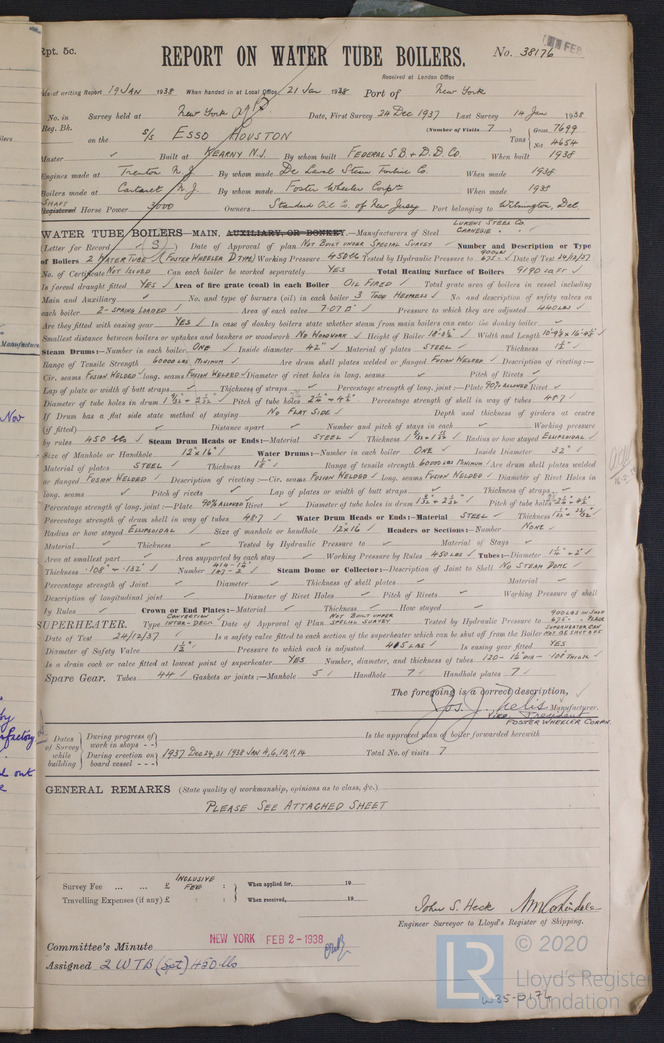 Rpt. 5c.
REPORT ON WATER TUBE BOILERS.
No. 38176
FEB
Received at London Office
Date of writing Report 19 JAN 1938 When handed in at Local Office 21 Jan 1938 Port of New York
No. in Survey held at New York Date, First Survey 24 Dec 1937 Last Survey 14 Jan 1938
Reg. Bk. (Number of Visits 7)
on the S/S ESSO HOUSTON Tons Gross 7699 Net 4654
Master ✓ Built at KEARNY N.J. By whom built FEDERAL S.B. & D.D. Co. When built 1938
Engines made at Trenton N.J. By whom made De Laval Steam Turbine Co. When made 1938
Boilers made at Carteret N.J. By whom made Foster Wheeler Corpn When made 1938
SHAFT Registered Horse Power 3000 Owners Standard Oil Co. of New Jersey Port belonging to Wilmington, Del.
WATER TUBE BOILERS—MAIN, AUXILIARY, OR DONKEY.—Manufacturers of Steel LUKENS STEEL CO. CARNEGIE " "
(Letter for Record (S)) Date of Approval of plan NOT BUILT UNDER SPECIAL SURVEY Number and Description or Type
of Boilers 2 WATER TUBE (FOSTER WHEELER D TYPE) Working Pressure 450 lb Tested by Hydraulic Pressure to 900 LBS 675 Date of Test 24/12/37
No. of Certificate NOT ISSUED Can each boiler be worked separately YES Total Heating Surface of Boilers 9190 SQ FT
Is forced draught fitted YES Area of fire grate (coal) in each Boiler OIL FIRED Total grate area of boilers in vessel including
Main and Auxiliary ✓ No. and type of burners (oil) in each boiler 3 TODD HEXPRESS No. and description of safety valves on
each boiler 2 - SPRING LOADED Area of each valve 7.07 □" Pressure to which they are adjusted 440 LBS
Are they fitted with easing gear YES In case of donkey boilers state whether steam from main boilers can enter the donkey boiler ✓
Smallest distance between boilers or uptakes and bunkers or woodwork NO WOODWORK Height of Boiler Width and Length
Steam Drums:—Number in each boiler ONE Inside diameter 42" Material of plates STEEL Thickness
Range of Tensile Strength 60000 LBS MINIMUM Are drum shell plates welded or flanged FUSION WELDED Description of riveting:—
Cir. seams FUSION WELDED long. seams FUSION WELDED Diameter of rivet holes in long. seams ✓ Pitch of Rivets ✓
Lap of plate or width of butt straps ✓ Thickness of straps ✓ Percentage strength of long. joint:—Plate 90% ALLOWED Rivet ✓
Diameter of tube holes in drum Pitch of tube holes Percentage strength of shell in way of tubes 48.7
If Drum has a flat side state method of staying NO FLAT SIDE Depth and thickness of girders at centre
(if fitted) ✓ Distance apart ✓ Number and pitch of stays in each ✓ Working pressure
by rules 450 lbs Steam Drum Heads or Ends:—Material STEEL Thickness Radius or how stayed ELLIPSOIDAL
Size of Manhole or Handhole 12" x 16" Water Drums:—Number in each boiler ONE Inside Diameter 32"
Material of plates STEEL Thickness Range of tensile strength 60000 LBS MINIMUM Are drum shell plates welded
or flanged FUSION WELDED Description of riveting:—Cir. seams FUSION WELDED long. seams FUSION WELDED Diameter of Rivet Holes in
long. seams ✓ Pitch of rivets ✓ Lap of plates or width of butt straps ✓ Thickness of straps ✓
Percentage strength of long. joint:—Plate 90% ALLOWED Rivet ✓ Diameter of tube holes in drum Pitch of tube holes
Percentage strength of drum shell in way of tubes 48.7 Water Drum Heads or Ends:—Material STEEL Thickness
Radius or how stayed ELLIPSOIDAL Size of manhole or handhole 12 x 16 Headers or Sections:—Number NONE
Material ✓ Thickness ✓ Tested by Hydraulic Pressure to ✓ Material of Stays ✓
Area at smallest part ✓ Area supported by each stay ✓ Working Pressure by Rules 450 LBS Tubes:—Diameter
Thickness .108" & .132" Number Steam Dome or Collector:—Description of Joint to Shell NO STEAM DOME
Percentage strength of Joint ✓ Diameter ✓ Thickness of shell plates ✓ Material ✓
Description of longitudinal joint ✓ Diameter of Rivet Holes ✓ Pitch of Rivets ✓ Working Pressure of shell
by Rules ✓ Crown or End Plates:—Material ✓ Thickness ✓ How stayed ✓
SUPERHEATER. Type CONVECTION INTER-DECK Date of Approval of Plan NOT BUILT UNDER SPECIAL SURVEY Tested by Hydraulic Pressure to 900 LBS IN SHOP 675 " " PLACE
Date of Test 24/12/37 Is a safety valve fitted to each section of the superheater which can be shut off from the Boiler SUPERHEATER CAN NOT BE SHUT OFF
Diameter of Safety Valve 1½" Pressure to which each is adjusted 405 LBS Is easing gear fitted YES
Is a drain cock or valve fitted at lowest point of superheater YES Number, diameter, and thickness of tubes
Spare Gear. Tubes 44 Gaskets or joints:—Manhole 5 Handhole 7 Handhole plates 7
The foregoing is a correct description,
Manufacturer.
Vice President
FOSTER WHEELER CORPN.
Dates of Survey while building
During progress of work in shops - -
During erection on board vessel - - -
1937 Dec 24, 31 1938 JAN 4, 6, 10, 11, 14
Is the approved plan of boiler forwarded herewith
Total No. of visits 7
GENERAL REMARKS (State quality of workmanship, opinions as to class, &c.)
PLEASE SEE ATTACHED SHEET
Survey Fee ... ... £ INCLUSIVE FEE : : When applied for, 19
Travelling Expenses (if any) £ : : When received, 19
John S. Heck
Engineer Surveyor to Lloyd's Register of Shipping.
Committee's Minute NEW YORK FEB 2 - 1938
Assigned 2 WTB (Spt) 450 lbs
LR
© 2020
Lloyd's Register
Foundation
W35-0176